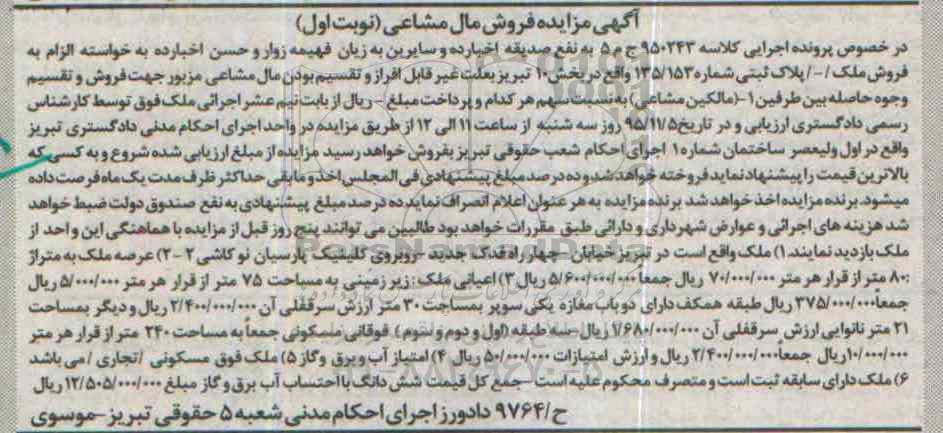 آگهی مزایده فروش مال مشاعی (نوبت اول)
در خصوص پرونده اجرایی کلاسه ۹۵۰۲۴۳ ج م ۵ به نفع صدیقه اخبارده و سایرین به زیان فهیمه زوار و حسن اخبارده به خواسته الزام به
فروش ملک /-/ پلاک ثبتی شماره ۱۳۵/۱۵۳ واقع در بخش ۱۰ تبریز بعلت غیر قابل افراز و تقسیم بودن مال مشاعی مزبور جهت فروش و تقسیم
وجوه حاصله بین طرفین ۱-(مالکین مشاعی) به نسبت سهم هر کدام و پرداخت مبلغ - ریال از بابت نیم عشر اجرائی ملک فوق توسط کارشناس
رسمی دادگستری ارزیابی و در تاریخ ۹۵/۱۱/۵ روز سه شنبه از ساعت ۱۱ الی ۱۲ از طریق مزایده در واحد اجرای احکام مدنی دادگستری تبریز
واقع در اول ولیعصر ساختمان شماره ۱ اجرای احکام شعب حقوقی تبریز بفروش خواهد رسید مزایده از مبلغ ارزیابی شده شروع و به کسی که
بالاترین قیمت را پیشنهاد نماید فروخته خواهد شد و ده درصد مبلغ پیشنهادی فی المجلس اخذ و مابقی حداکثر ظرف مدت یک ماه فرصت داده
میشود. برنده مزایده اخذ خواهد شد برنده مزایده به هر عنوان اعلام انصراف نماید ده درصد مبلغ پیشنهادی به نفع صندوق دولت ضبط خواهد
شد هزینه های اجرائی و عوارض شهرداری و دارائی طبق مقررات خواهد بود طالبین می توانند پنج روز قبل از مزایده با هماهنگی این واحد از
ملک بازدید نمایند. ۱) ملک واقع است در تبریز خیابان - چهارراه قدک جدید - روبروی کلینیک پارسیان نو کاشی ۲-۲) عرصه ملک به متراژ
۸۰ متر از قرار هر متر ۷۰/۰۰۰/۰۰۰ ریال جمعاً ۵/۶۰۰/۰۰۰/۰۰۰ ریال ۳) اعیانی ملک: زیرزمینی به مساحت ۷۵ متر از قرار هر متر ۵/۰۰۰/۰۰۰ ریال
جمعا ۳۷۵/۰۰۰/۰۰۰ ریال طبقه همکف دارای دو باب مغازه یکی سوپر بمساحت ۳۰ متر ارزش سرقفلی آن ۲/۴۰۰/۰۰۰/۰۰۰ ریال و دیگر بمساحت
۲۱ متر نانوایی ارزش سرقفلی آن ۱/۶۸۰/۰۰۰/۰۰۰ ریال - سه طبقه (اول و دوم و سوم) فوقانی مسکونی جمعاً به مساحت ۲۴۰ متر از قرار هر متر
۱۰/۰۰۰/۰۰۰ ریال جمعاً ۲/۴۰۰/۰۰۰/۰۰۰ ریال و ارزش امتیازات ۵۰/۰۰۰/۰۰۰ ریال ۴) امتیاز آب و برق و گاز ۵) ملک فوق مسکونی /تجاری/ می باشد
۶) ملک دارای سابقه ثبت است و متصرف محکوم علیه است - جمع کل قیمت شش دانگ با احتساب آب برق و گاز مبلغ ۱۲/۵۰۵/۰۰۰/۰۰۰ ریال
ح/۹۷۶۴ دادورز اجرای احکام مدنی شعبه ۵ حقوقی تبریز - موسوی
ParsNamadData